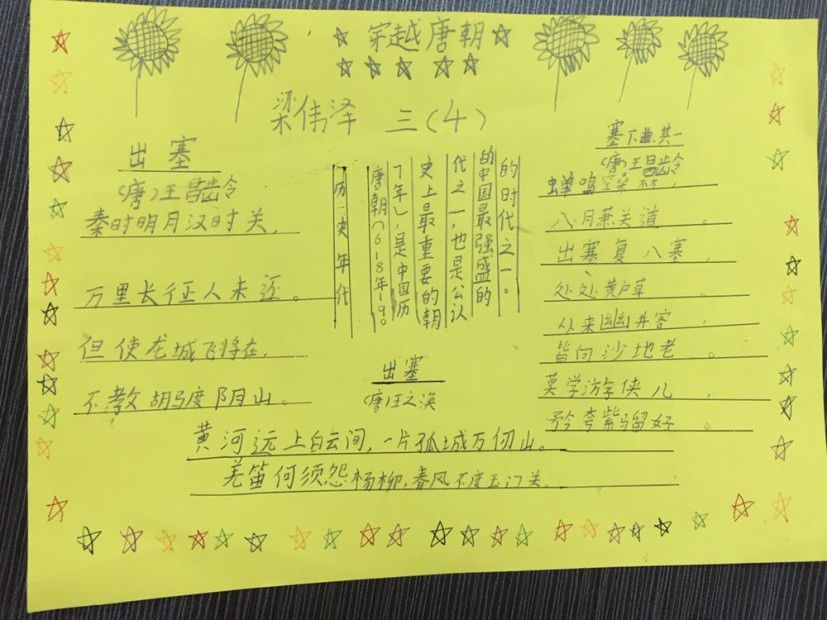 穿越唐朝
梁伟泽 三(4)
出塞
(唐)王昌龄
秦时明月汉时关，
万里长征人未还。
但使龙城飞将在，
不教胡马度阴山。
历史年代
唐朝(618年-90
7年)，是中国历
史上最重要的朝
代之一，也是公认
的中国最强盛的
的时代之一。
出塞
(唐)王之涣
黄河远上白云间，一片孤城万仞山。
羌笛何须怨杨柳，春风不度玉门关。
塞下曲其一
(唐)王昌龄
蝉鸣桑林，
八月萧关道。
出塞复入塞，
处处黄芦草。
从来幽并客，
皆向沙地老。
莫学游侠儿，
矜夸紫骝好。